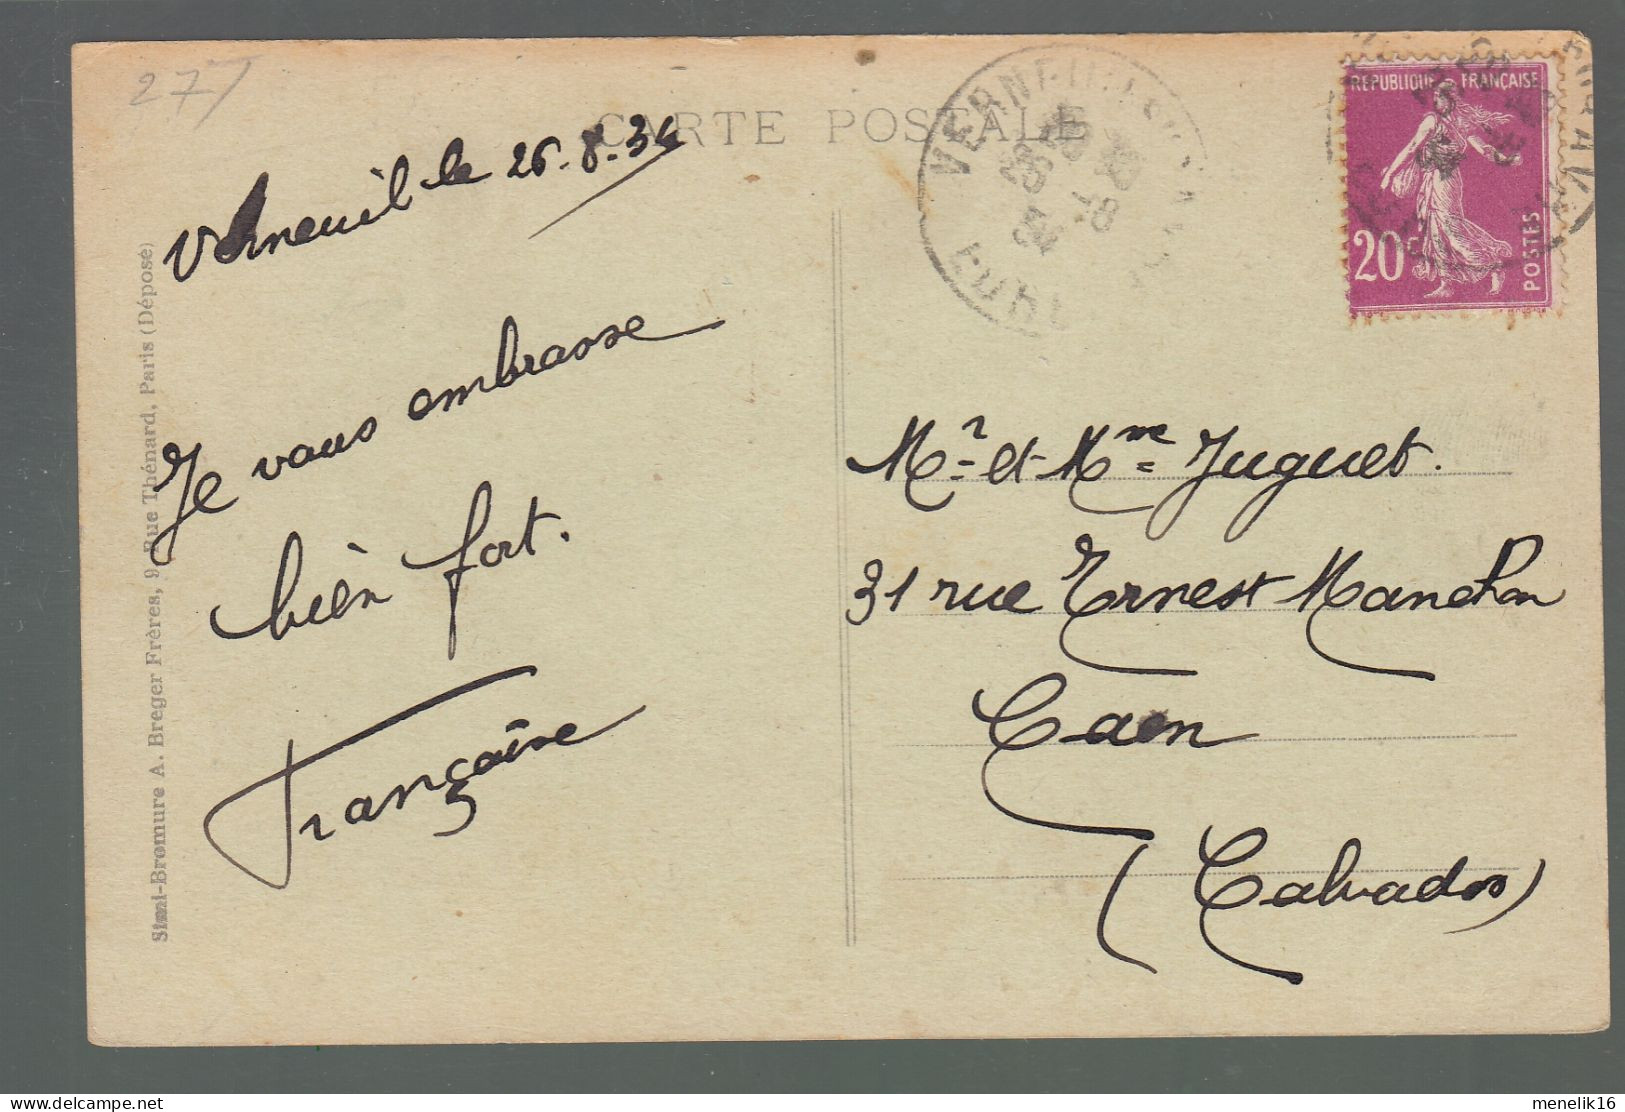 277
CARTE POSTALE
Verneuil le 26.8.34
Je vous embrasse
bien fort.
Françoise
Simi-Bromure A. Breger Frères, 9, Rue Thénard, Paris (Déposé)
VERNEUIL SUR AVRE
26 -8
34
EURE
REPUBLIQUE FRANÇAISE
20c
POSTES
Mr et Mme Juguet.
31 rue Ernest Manchon
Caen
(Calvados)
delcampe.net
menelik16